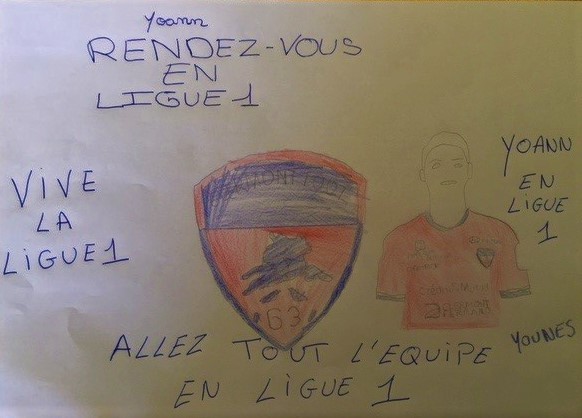 Yoann
RENDEZ-VOUS
EN
LIGUE 1
VIVE
LA
LIGUE 1
63
YOANN
EN
LIGUE
1
ALLEZ TOUT L'EQUIPE
EN LIGUE 1
YOUNES